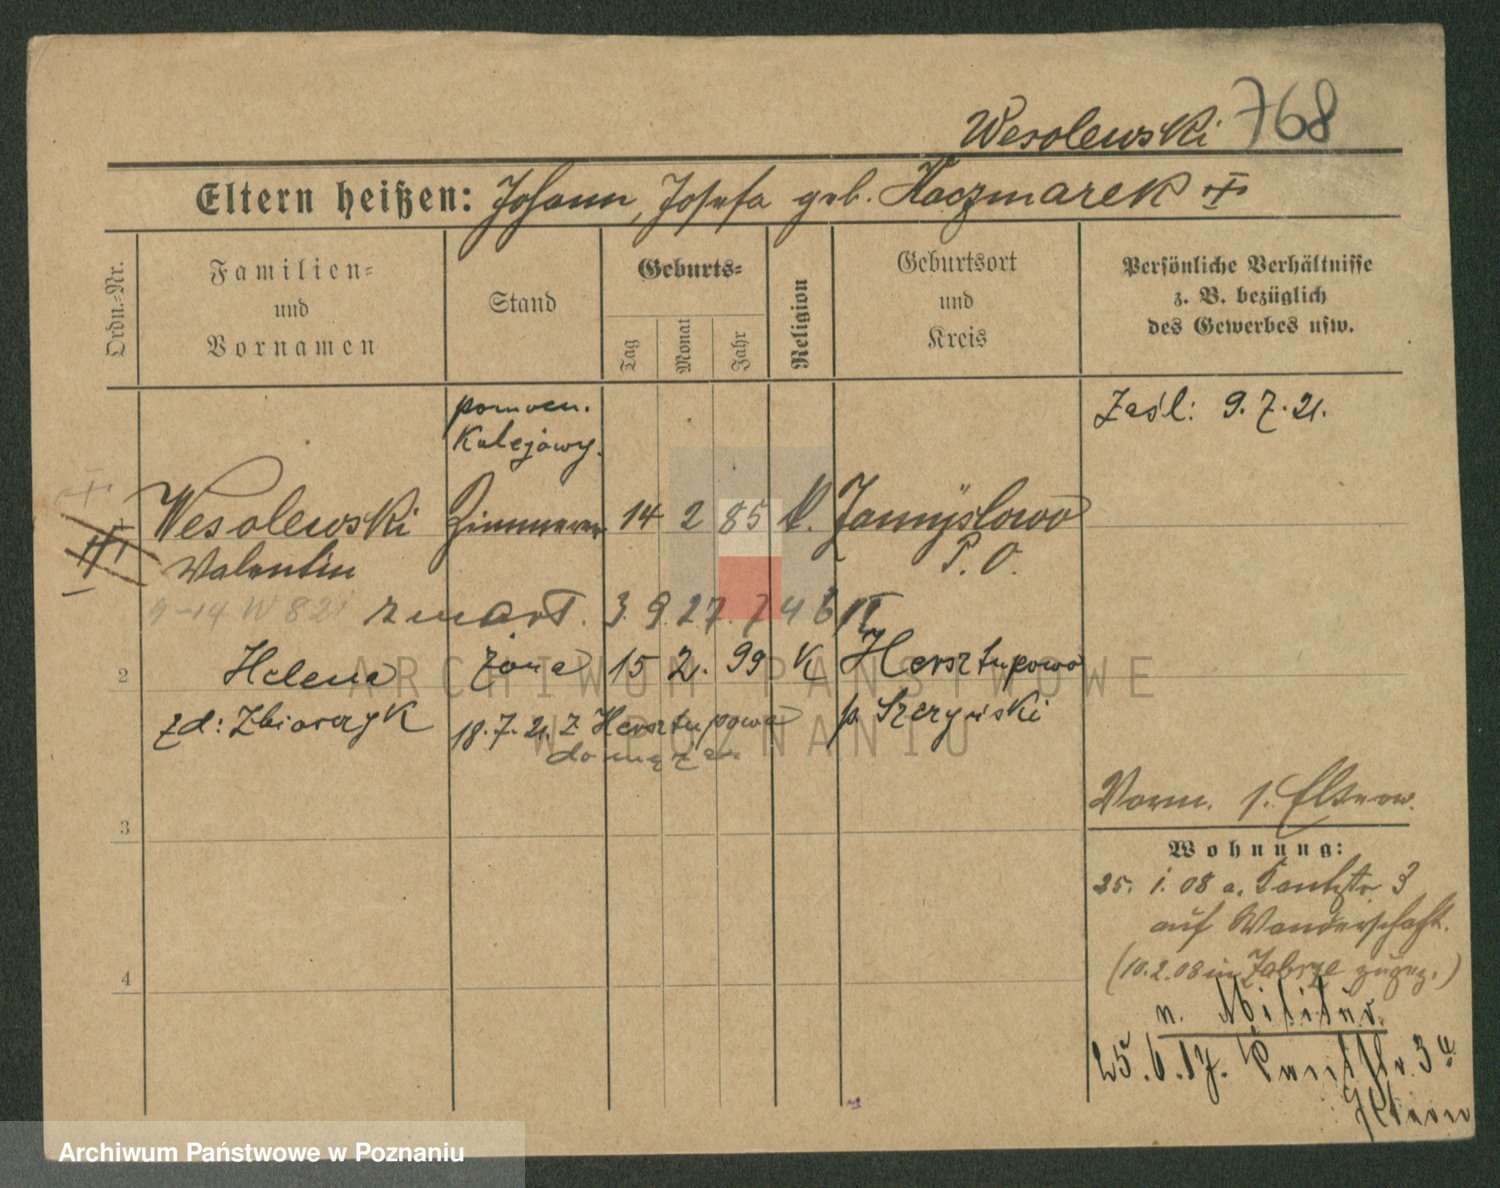 Wesolewski 768
Eltern heißen: Johann, Josefa geb. Kaczmarek
Ordn.-Nr.
Familien-
und
Vornamen
Stand
Geburts-
Tag
Monat
Jahr
Religion
Geburtsort
und
Kreis
Persönliche Verhältnisse
z. B. bezüglich
des Gewerbes usw.
pomocn.
kolejowy.
Zaśl: 9.7.21.
Wesolewski Zimmerer 14 2 85 k.
Valentin P. O.
9-14 W 821 zmarł. 3. 9. 27. 746
2 Helena żona 15 2. 99 K Hersztupowo
zd: Zbiorczyk 18.7.21. z Hersztupowa
do męża
3
Vorm. s. Eltern.
Wohnung:
25. 1. 08 a. 3
auf Wanderschaft.
(10.2.08 in Zabrze zugez.)
4
n. Militär.
25.6.17. 3a
Eltern
ARCHIWUM PAŃSTWOWE
W POZNANIU
Archiwum Państwowe w Poznaniu